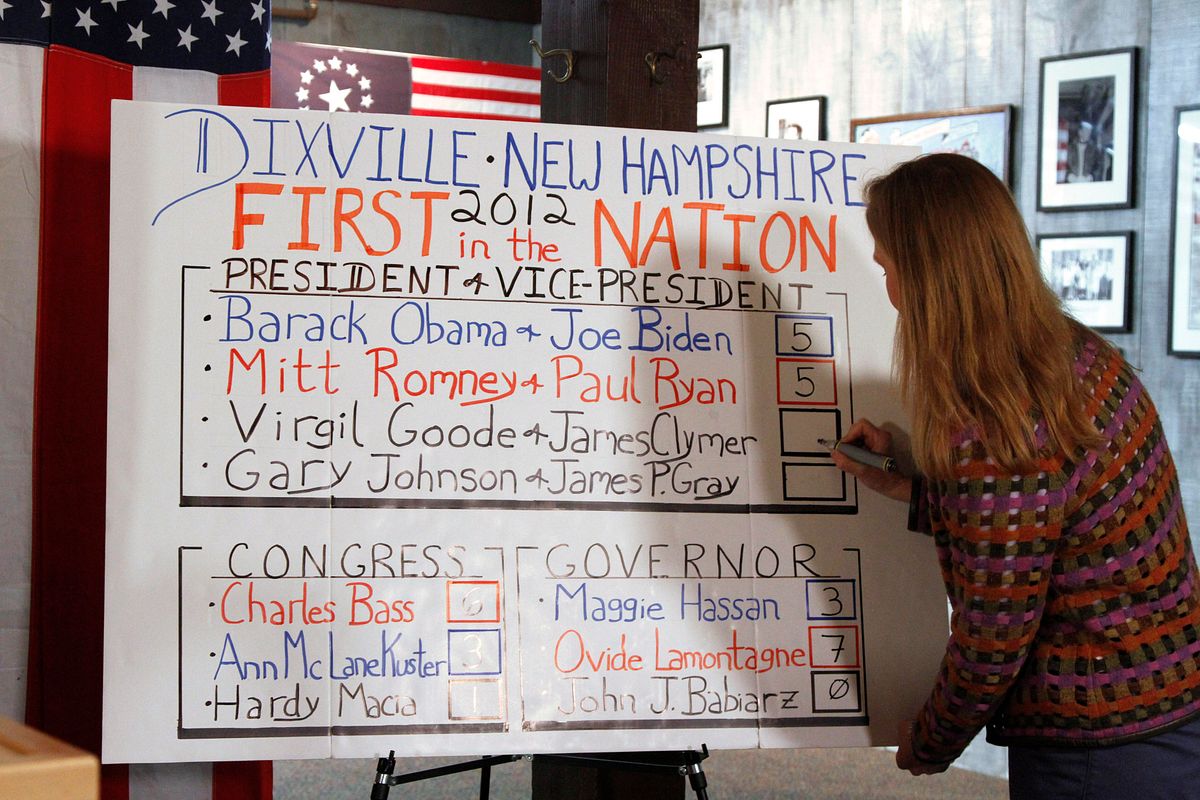 DIXVILLE·NEW HAMPSHIRE
FIRST 2012 in the NATION
PRESIDENT & VICE-PRESIDENT
· Barack Obama & Joe Biden 5
· Mitt Romney & Paul Ryan 5
· Virgil Goode & James Clymer
· Gary Johnson & James P. Gray
CONGRESS
· Charles Bass 6
· Ann McLane Kuster 3
· Hardy Macia 1
GOVERNOR
· Maggie Hassan 3
Ovide Lamontagne 7
John J. Babiarz 0